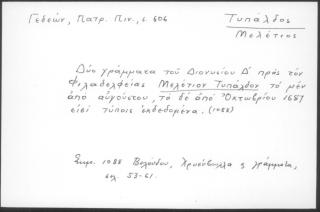 Γεδεών, Πατρ. Πιν., σ. 604
Τυπάλδος
Μελέτιος
Δύο γράμματα τοῦ Διονυσίου Δ' πρὸς τὸν
Φιλαδελφείας Μελέτιον Τυπάλδον τὸ μὲν
ἀπὸ αὐγούστου, τὸ δὲ ἀπὸ Ὀκτωβρίου 1687
εἰσὶ τύποις ἐκδεδομένα. (1088)
Σημ. 1088 Βελούδου, Χρυσόβουλλα ἢ γράμματα,
σελ. 53-61.